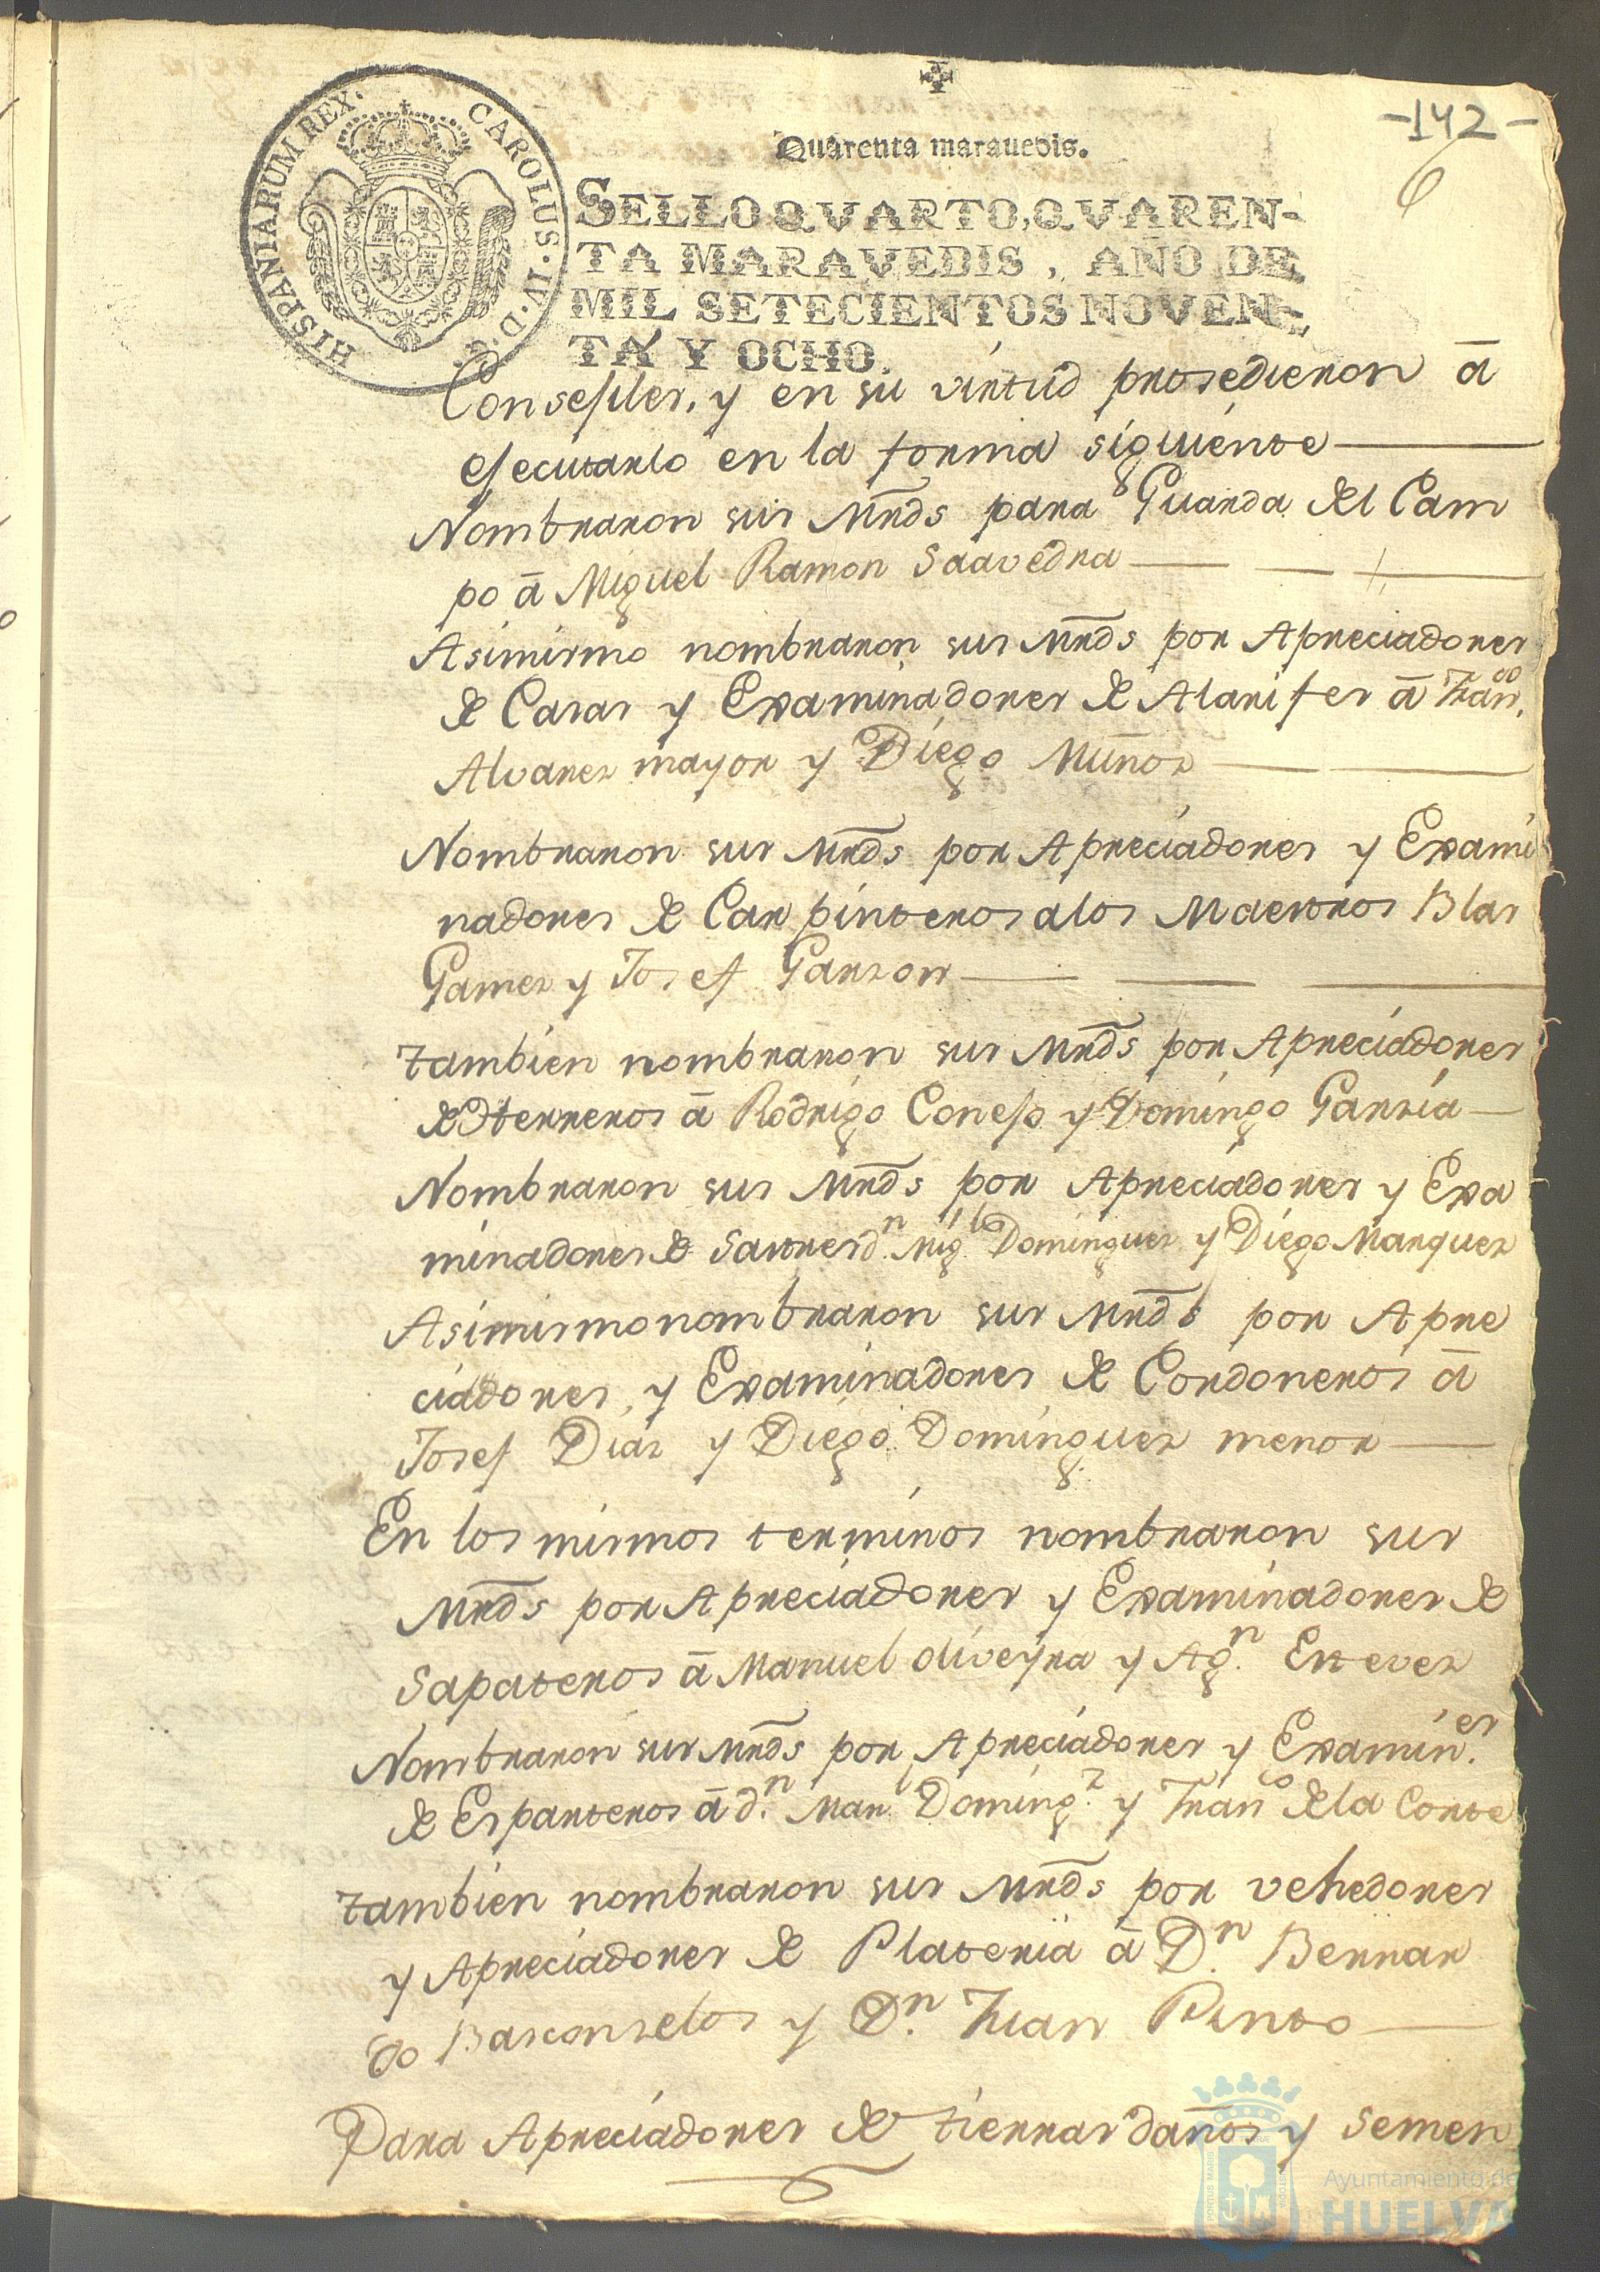 -142-
6
Quarenta maravedis.
HISPANIARUM REX. CAROLUS. IV. D. G.
SELLO QVARTO, QVAREN-
TA MARAVEDIS, AÑO DE
MIL SETECIENTOS NOVEN-
TA Y OCHO.
y en su virtud prosedieron â
ejecutarlo en la forma siguiente
Nombraron sus Mrds para Guarda del Cam
po â Miguel Ramon Saavedra
Asimismo nombraron sus Mrds por Apreciadores
de Casas y Examinadores de Alarifes â Franco.
Alvarez mayor y Diego Muñoz
Nombraron sus Mrds por Apreciadores y Exami
nadores de Carpinteros a los Maestros Blas
Gamez y Josef Garzon
tambien nombraron sus Mrds por Apreciadores
de Herreros â Rodrigo Conejo y Domingo Garzia
Nombraron sus Mrds por Apreciadores y Exa
minadores de Sastres dn. Migl Dominguez y Diego Marquez
Asimismo nombraron sus Mrds por Apre
ciadores, y Examinadores de Cordoneros â
Josef Diaz y Diego Dominguez menor
En los mismos terminos nombraron sus
Mrds por Apreciadores y Examinadores de
Sapateros â Manuel Oliveyra y Agn. Estevez
Nombraron sus Mrds por Apreciadores y Examin.es
de Esparteros â dn. Manl Doming.z y Franco de la Corte
tambien nombraron sus Mrds por vehedores
y Apreciadores de Plateria â Dn. Bernar
do Basconzelos y Dn. Juan Pinto
Para Apreciadores de tierras daños y Semen
Ayuntamiento de
HUELVA